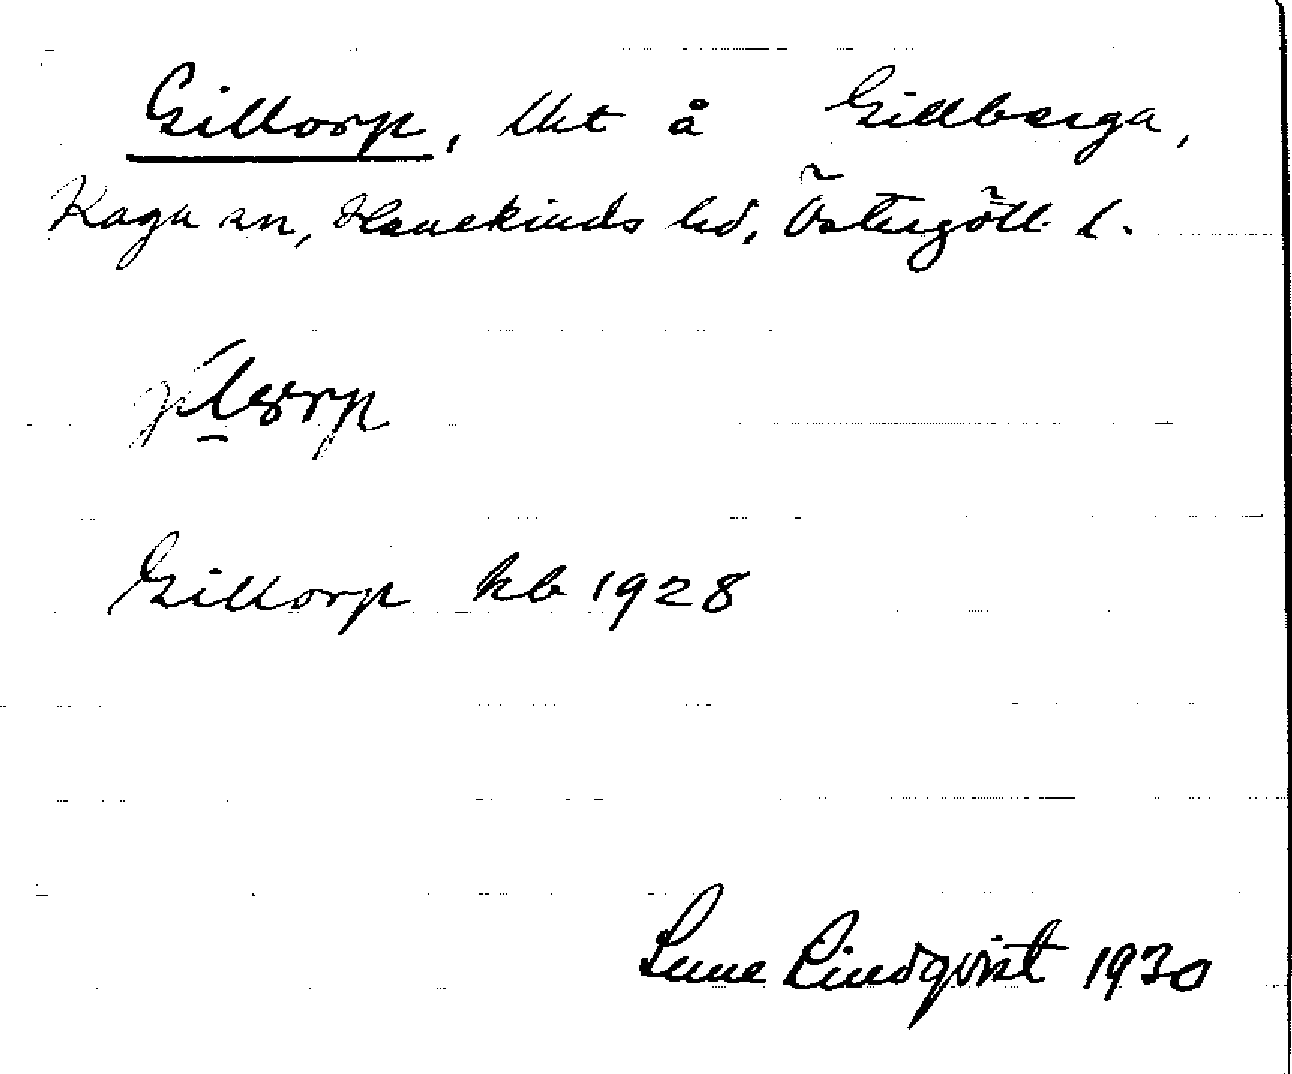 Gilltorp, tht å Gillberga,
Kaga sn, Hanekinds hd, Östergötl l.
Gilltorp kb 1928
Sune Lindqvist 1930